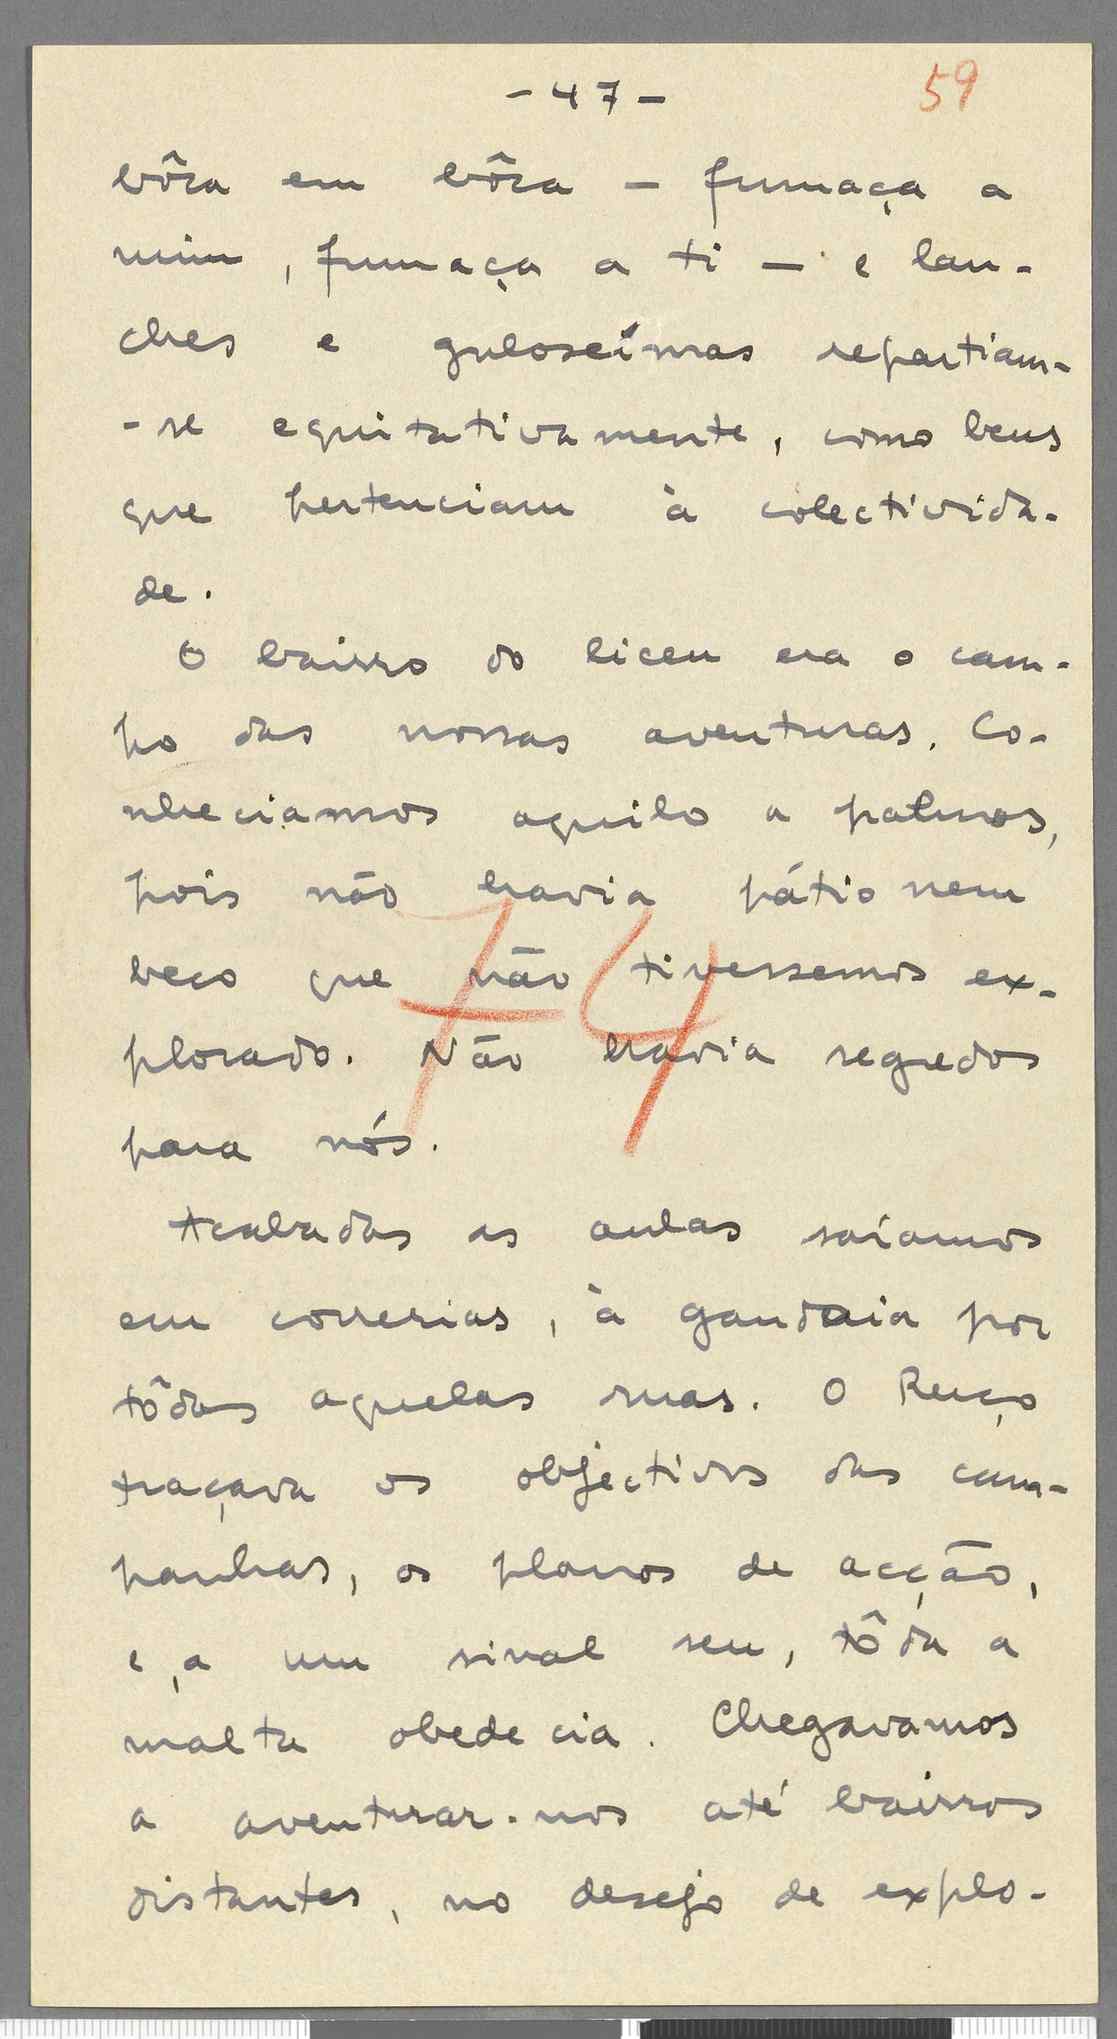 - 47 -
59
bôca em bôca – fumaça a
mim, fumaça a ti – e lan-
ches e guloseímas repartiam-
-se equitativamente, como bens
que pertenciam à colectivida-
de.
O bairro do liceu era o cam-
po das nossas aventuras. Co-
nheciamos aquilo a palmos,
pois não havia pátio nem
beco que não tivessemos ex-
plorado. Não havia segredos
para nós.
74
Acabadas as aulas saíamos
em correrias, à gandaia por
tôdas aquelas ruas. O Ruço
traçava os objectivos das cam-
panhas, os planos de acção,
e, a um sinal seu, tôda a
malta obedecia. Chegavamos
a aventurar-nos até bairros
distantes, no desejo de explo-